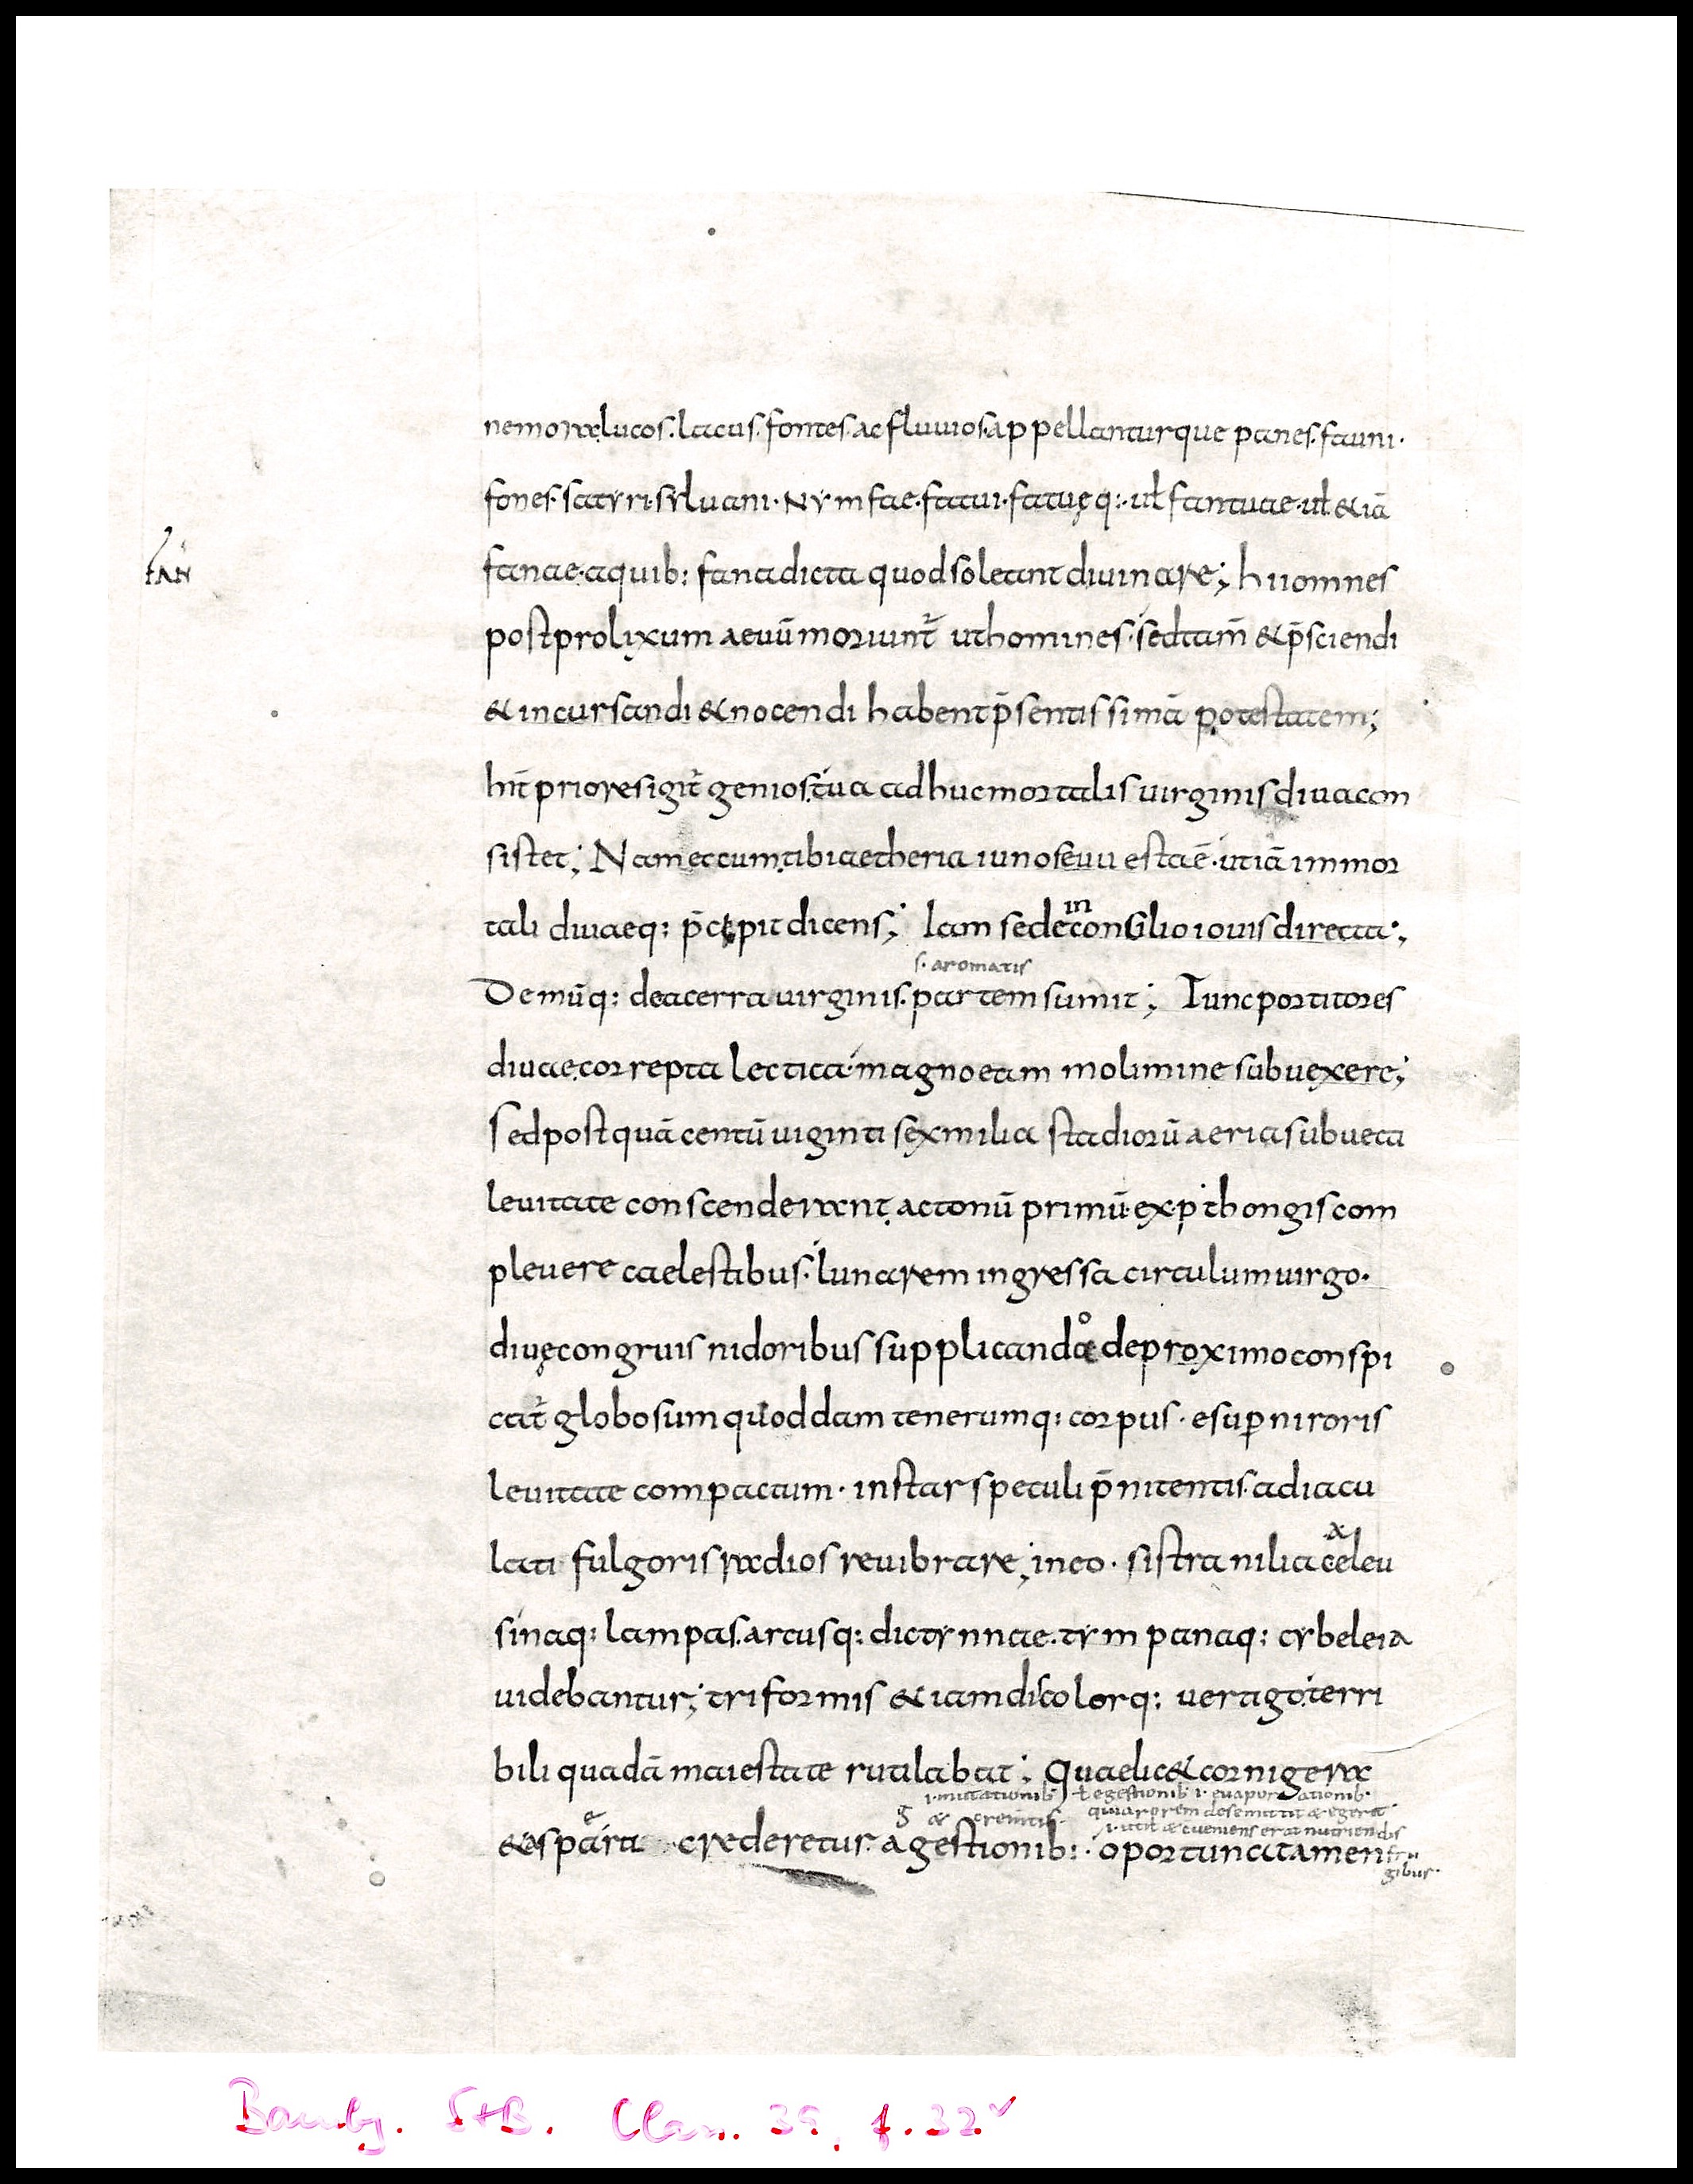 nemora lucos. lacus. fontes. ac fluuios. appellanturque panes. fauni.
fones. satyri. syluani. Nymfae. fatui. fatuęq:. uł fantuae. uł &iā
FAN
fanae. aquib: fana dicta quod soleant diuinare; hiiomnes
post prolixum aeuū moriunt̃ ut homines. sed tam̄ & p̄sciendi
& incursandi & nocendi habent p̄sentissimā potestatem;
hīc priores igit̃ genios. tua adhuc mortalis uirginis diua con
sistet; Nam et cum tibi aetheria iuno seuu esta ē. utiā immor
tali diuaeq: p̄cępit dicens; Iam sede in consilio iouis directa;
s. aromatis
Demūq: deacerra uirginis. partem sumit; Tunc portitores
diuae correpta lectica magno eam molimine subuexere;
Sed postquā centū uiginti sex milia stadiorū aeria subuecti
leuitate conscenderant, ac tonū primū. ex pthongis com
pleuere caelestibus. lunarem ingressa circulum uirgo.
diuę congruis nidoribus supplicandae de proximo conspi
o
cat̃ globosum quoddam tenerumq: corpus. e sup̱ni roris
leuitate compactum. instar speculi p̄nitentis. adiacu
lati fulgoris radios reuibrare, in eo. sistra niliaca eleu
sinaq: lampas. arcusq: dictynnae. tympanaq: cybeleia
uidebantur; triformis & iam discolorq: uertigo. terri
bili quadā maiestate rutilabat; Quaelic& cornigera
i. mutationib. ł egestionib. i. euaporationib.
quia rorem de se mittit & egerit
i. utit & cueniens erat nutriendis
fru
gibus.
&aspera crederetur. a gestionib: oportuna tamen
Bambg. StB. Class. 39, f. 32v